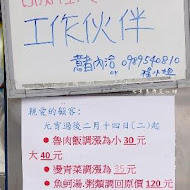 工作伙伴
意者內洽 0989540810
親愛的顧客:
元宵過後二月十四日(二)起
●魯肉飯調漲為小30元
大40元
●燙青菜調漲為35元
●魚蚵湯.粥類調回原價120元